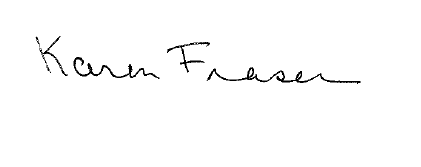 Karen Fraser